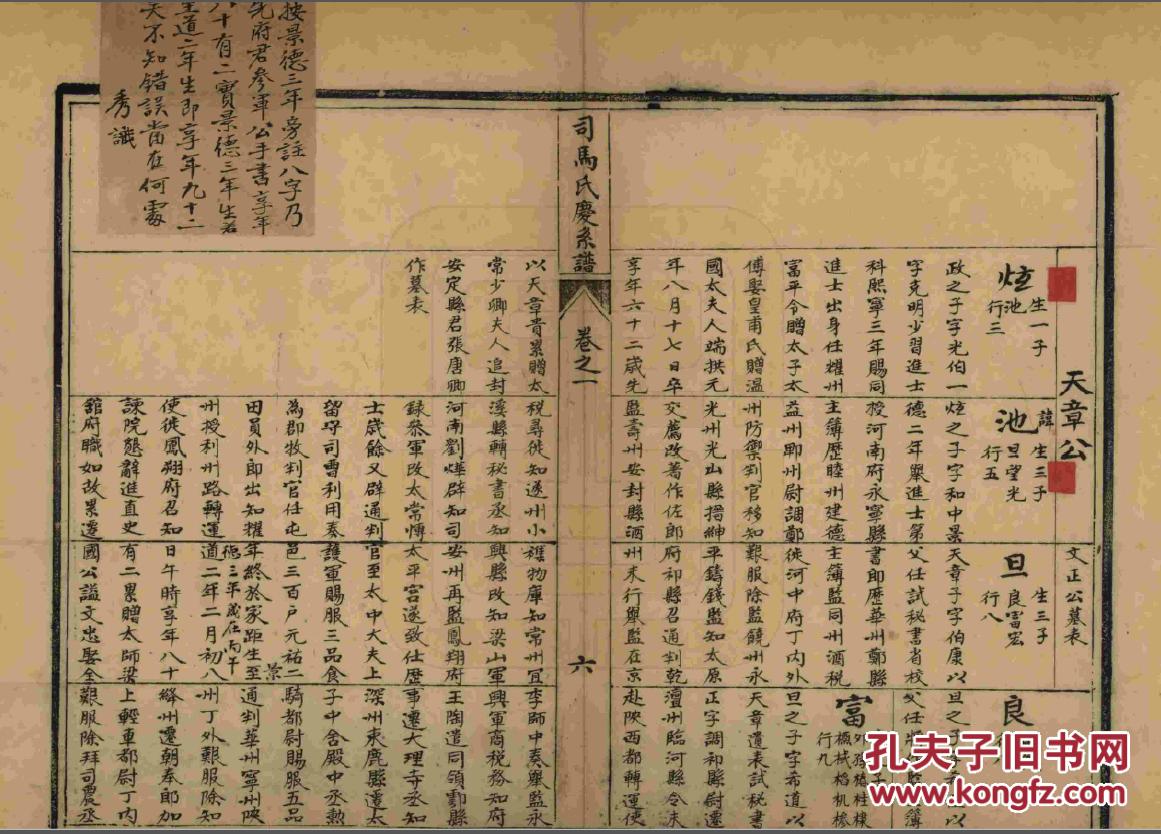 天章公
炫
生一子
池
行三
政之子字光伯一
字克明少習進士
科熙寧三年賜同
進士出身任耀州
富平令贈太子太
傅娶皇甫氏贈溫
國太夫人端拱元
年八月十七日卒
享年六十二歲先
諱
池
生三子
旦望光
行五
炫之子字和中景
德二年舉進士第
授河南府永寧縣
主簿歷睦州建德
益州郫州尉調鄭
州防禦判官移知
光州光山縣搢紳
交薦改著作佐郎
監壽州安封縣酒
文正公墓表
旦
生三子
良富宏
行八
天章子字伯康以
父任試秘書省校
書郎歷華州鄭縣
主簿監同州酒稅
徙河中府丁內外
艱服除監饒州永
平鑄錢監知太原
府祁縣召通判乾
州末行舉監在京
良
旦之子字
以
父任
監簿
富
行九
旦之子字希道以
天章遺表試秘書
正字調祁縣尉遷
澶州臨河縣令未
赴陝西都轉運使
司馬氏慶系譜
卷之一
六
以天章貴累贈太
常少卿夫人追封
安定縣君張唐卿
作墓表
稅尋徙知遂州小
溪縣轉秘書丞知
河南劉燁辟知司
錄參軍改太常博
士歲餘又辟通判
留守司曹利用奏
為郡牧判官任屯
田員外郎出知耀
州授利州路轉運
使徙鳳翔府召知
諫院懇辭進直史
舘府職如故累遷
雜物庫知常州宜
興縣改知梁山軍
安州再監鳳翔府
太平宮遂致仕歷
官至太中大夫上
護軍賜服三品食
邑三百戶元祐二
年終於家距生至
景德三年歲在丙午
道二年二月初八
日午時享年八十
有二累贈太師梁
國公謚文忠娶全
李師中奏舉監永
興軍商稅務知府
王陶遣同領酆縣
事遷大理寺丞知
深州束鹿縣遷太
子中舍殿中丞勲
騎都尉賜服五品
通判華州寧州陝
州丁外艱服除知
絳州遷朝奉郎加
上輕車都尉丁內
艱服除拜司農丞
按景德三年旁註八字乃
先府君參軍公手書享年
八十有二實景德三年生若
至道二年生即享年九十二
矣不知錯誤當在何處
秀識
孔夫子旧书网
www.kongfz.com